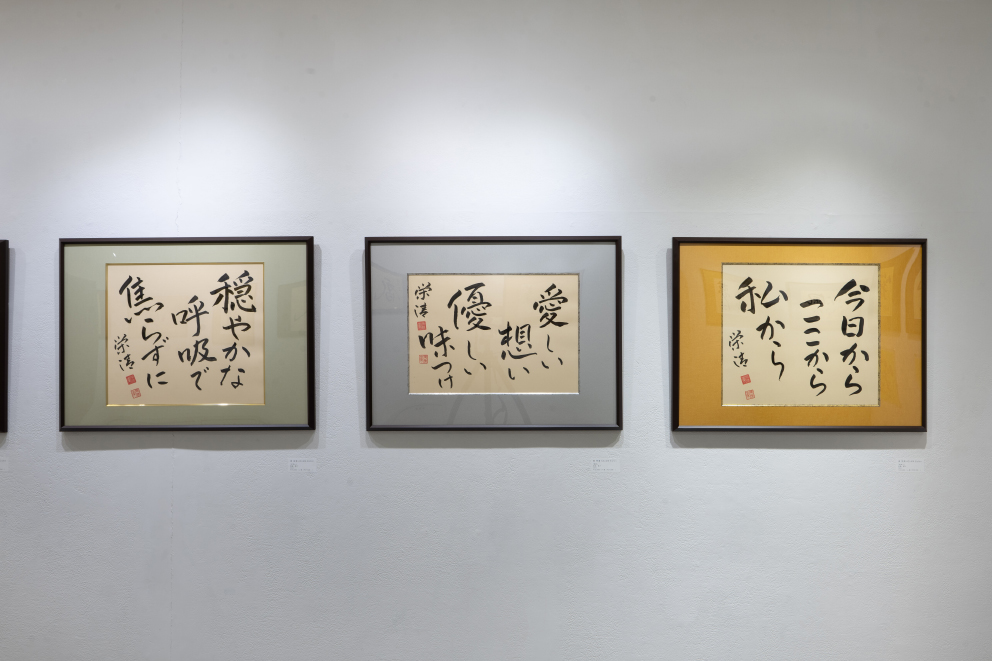 穏やかな
呼吸で
焦らずに
栄清
愛しい
想い
優しい
味つけ
栄清
今日から
ここから
私から
栄清